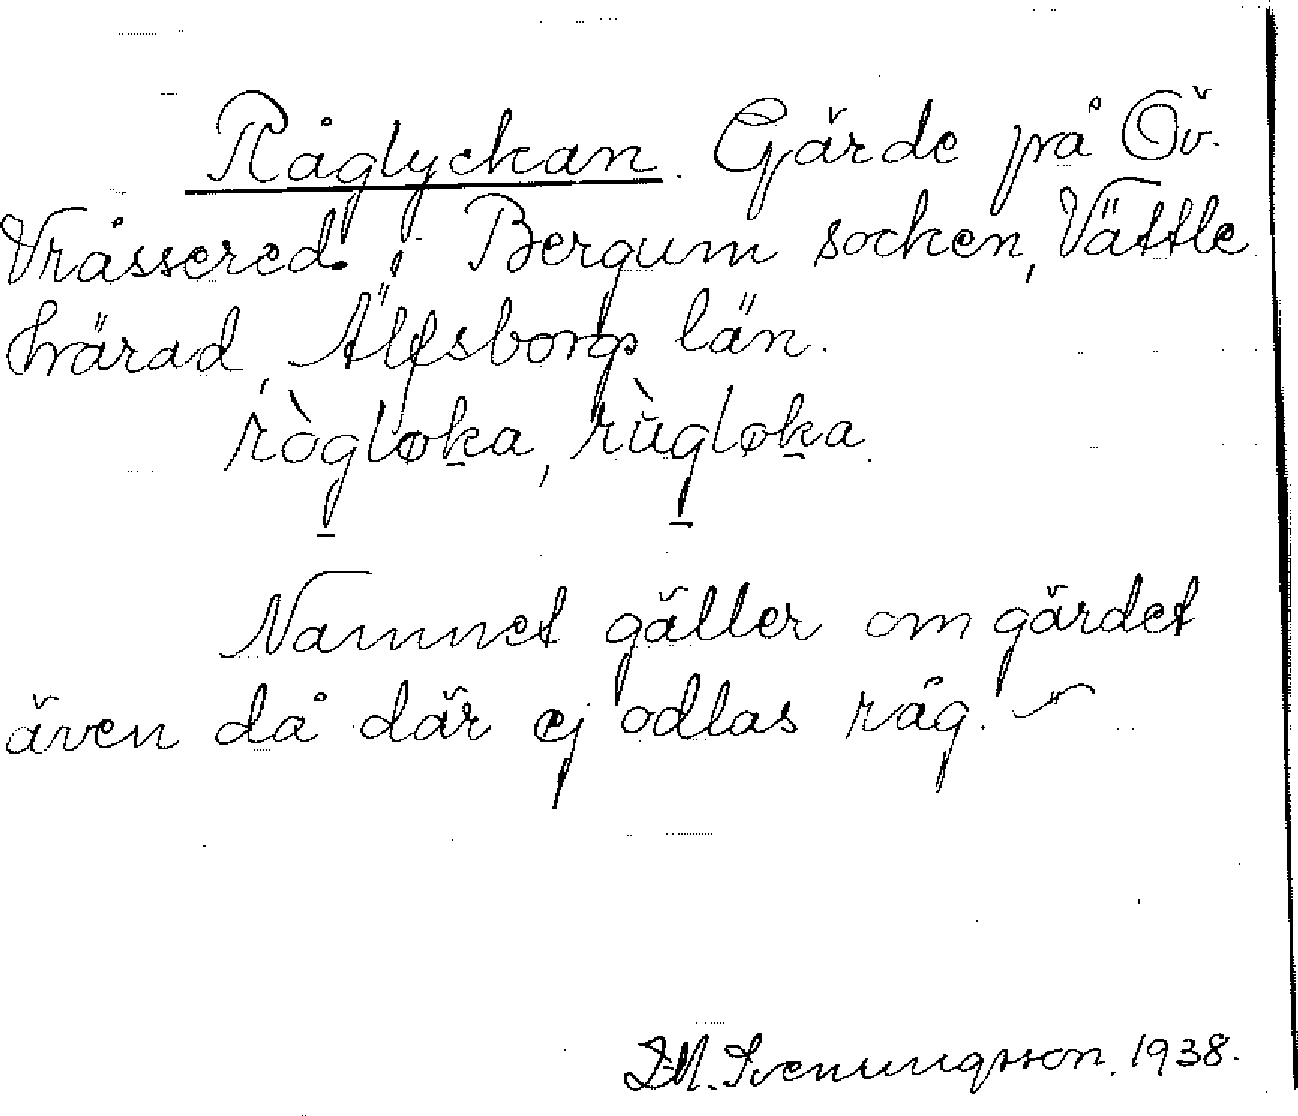 Råglyckan. Gärde på Öv.
Vråssered i Bergum socken, Vättle
härad, Älfsborgs län.
rògløka, rùgløka.
Namnet gäller om gärdet
även då där ej odlas råg.
D.M. Svenungsson. 1938.